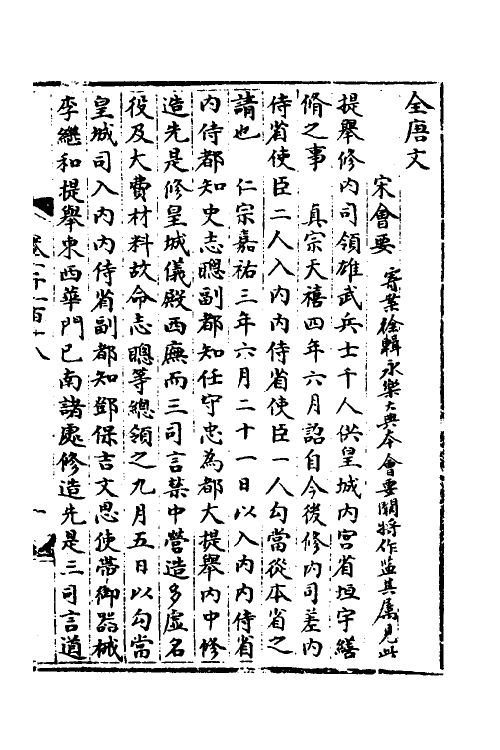 全唐文
宋會要
寄案徐輯永樂大典本會要闕將作監其屬見此
提舉修內司領雄武兵士千人供皇城內宮省垣宇繕
脩之事　真宗天禧四年六月詔自今後修內司差內
侍省使臣二人入內內侍省使臣一人勾當從本省之
請也　仁宗嘉祐三年六月二十一日以入內內侍省
內侍都知史志聰副都知任守忠為都大提舉內中修
造先是修皇城儀殿西廡而三司言禁中營造多虛名
役及大費材料故命志聰等總領之九月五日以勾當
皇城司入內內侍省副都知鄧保吉文思使帶御器械
李繼和提舉東西華門已南諸處修造先是三司言道
卷一千一百十八
一